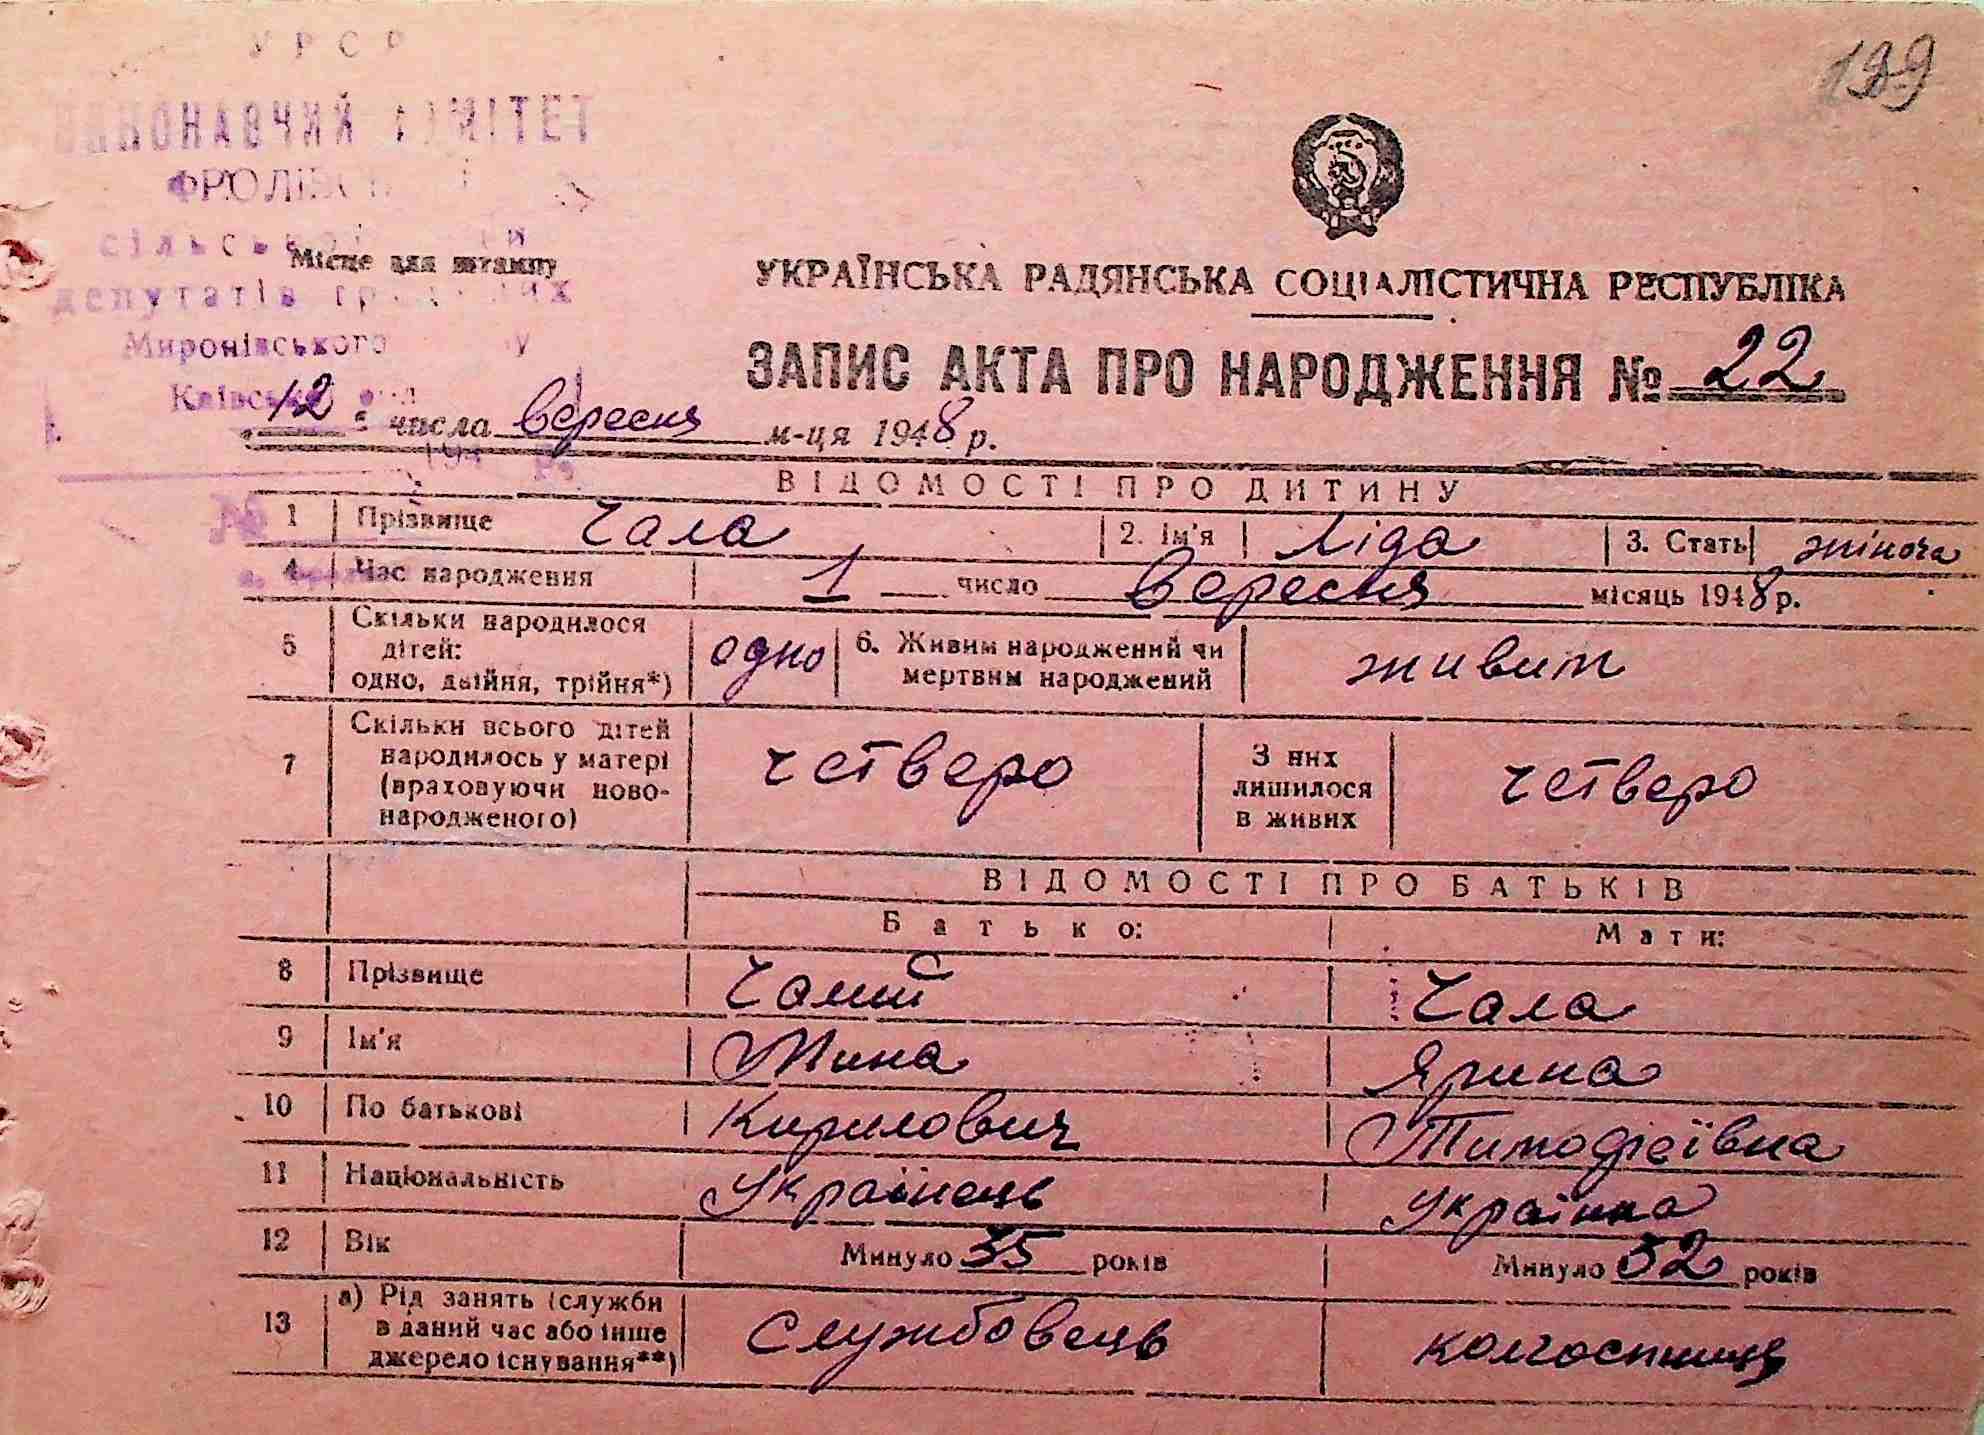 139
УРСР
ВИКОНАВЧИЙ КОМІТЕТ
сільської
депутатів
Миронівського
Місце для штампу
УКРАЇНСЬКА РАДЯНСЬКА СОЦІАЛІСТИЧНА РЕСПУБЛІКА
ЗАПИС АКТА ПРО НАРОДЖЕННЯ № 22
12 числа вересня м-ця 1948 р.
194 р.
№
ВІДОМОСТІ ПРО ДИТИНУ
1 Прізвище Чала 2. Ім'я Ліда 3. Стать жіноча
4 Час народження 1 число вересня місяць 1948 р.
5 Скільки народилося дітей: одно, двійня, трійня*) одно 6. Живим народжений чи мертвим народжений живим
7 Скільки всього дітей народилось у матері (враховуючи ново-народженого) четверо З них лишилося в живих четверо
ВІДОМОСТІ ПРО БАТЬКІВ
Батько: Мати:
8 Прізвище Чалий Чала
9 Ім'я Мина Ярина
10 По батькові Кирилович Тимофієївна
11 Національність Українець Українка
12 Вік Минуло 35 років Минуло 32 років
13 а) Рід занять (служби в даний час або інше джерело існування**) Службовець колгоспниця